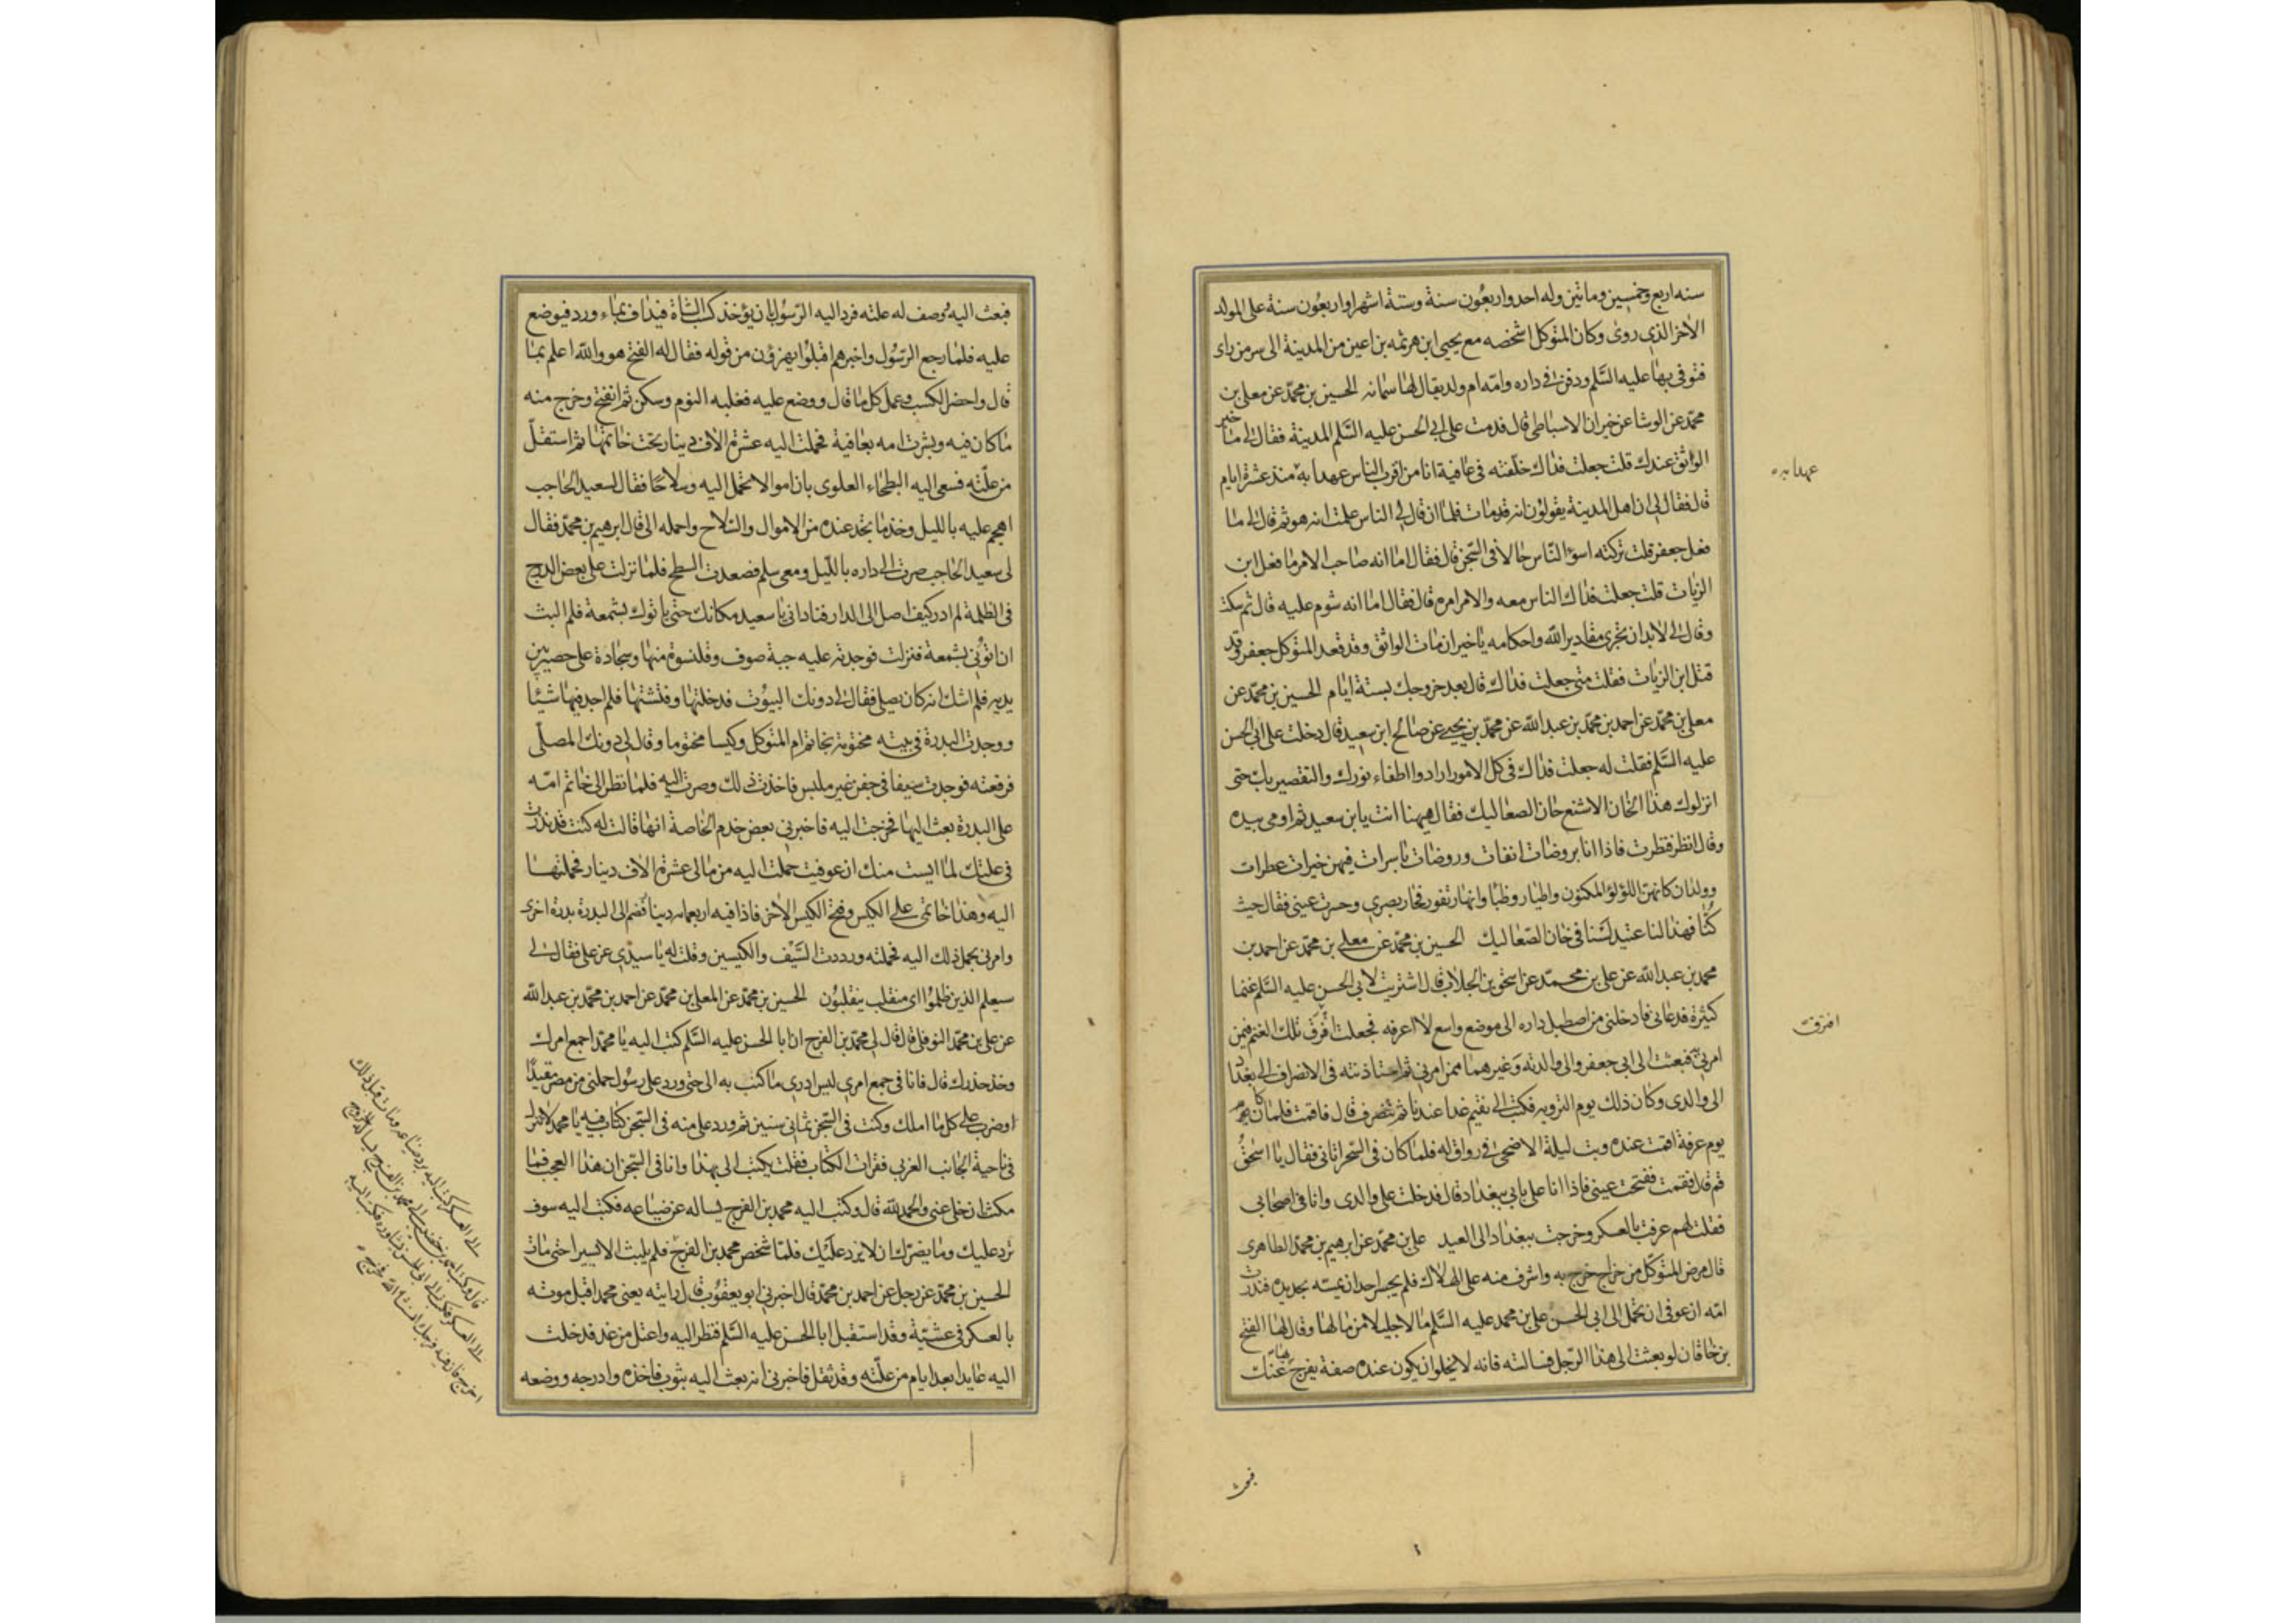 سنه اربع وخمسين وماتين وله احد واربعون سنة وستة اشهر او اربعون سنة على المولد
الاخر الذى روى وكان المتوكل اشخصه مع يحيى ابن هرثمه بن اعين من المدينة الى سر من راى
فتوفى بها عليه السلم ودفن فى داره وامه ام ولد يقال لها سمانه الحسين بن محمد عن معلى بن
محمد عن الوشا عن خيران الاسباطى قال قدمت على ابى الحسن عليه السلم المدينة فقال لى ما خبر
الواثق عندك قلت جعلت فداك خلفته فى عافية انا من اقرب الناس عهدا به منذ عشرة ايام
قال فقال لى ان اهل المدينة يقولون انه قد مات فلما ان قال لى الناس علمت انه هو ثم قال لى ما
فعل جعفر قلت تركته اسوء الناس حالا فى السجن قال فقال اما انه صاحب الامر ما فعل ابن
الزيات قلت جعلت فداك الناس معه والامر امره قال فقال اما انه شوم عليه قال ثم سكت
وقال لى لابد ان تجرى مقادير الله واحكامه يا خيران مات الواثق وقد قعد المتوكل جعفر وقد
قتل ابن الزيات فقلت متى جعلت فداك قال بعد خروجك بستة ايام الحسين بن محمد عن
معلى بن محمد عن احمد بن محمد بن عبد الله عن محمد بن يحيى عن صالح ابن سعيد قال دخلت على ابى الحسن
عليه السلم فقلت له جعلت فداك فى كل الامور ارادوا اطفاء نورك والتقصير بك حتى
انزلوك هذا الخان الاشنع خان الصعاليك فقال ههنا انت يابن سعيد ثم اومى بيده
وقال انظر فنظرت فاذا انا بروضات انقات وروضات باسرات فيهن خيرات عطرات
وولدان كانهن اللؤلؤ المكنون واطيار وظبا وانهار تفور فحار بصرى وحسرت عينى فقال حيث
كنا فهذا لنا عتيد لسنا فى خان الصعاليك الحسين بن محمد عن معلى بن محمد عن احمد بن
محمد بن عبد الله عن على بن محمد عن اسحق بن الجلاب قال اشتريت لابى الحسن عليه السلم غنما
كثيرة فدعانى فادخلنى من اصطبل داره الى موضع واسع لا اعرفه فجعلت افرق تلك الغنم فيمن
امرنى به فبعث الى ابى جعفر والى والدته وغيرهما ممن امرنى ثم استاذنته فى الانصراف الى بغداد
الى والدى وكان ذلك يوم التروية فكتب الى تقيم غدا عندنا ثم تنصرف قال فاقمت فلما كان
يوم عرفة اقمت عنده وبت ليلة الاضحى فى رواق له فلما كان فى السحر اتانى فقال يا اسحق
قم قال فقمت ففتحت عينى فاذا انا على بابى ببغداد قال فدخلت على والدى وانا فى اصحابى
فقلت لهم عرفت بالعسكر وخرجت ببغداد الى العيد على بن محمد عن ابرهيم بن محمد الطاهرى
قال مرض المتوكل من خراج خرج به واشرف منه على الهلاك فلم يجسر احد ان يمسه بحديده فنذرت
امه ان عوفى ان تحمل الى ابى الحسن على بن محمد عليه السلم مالا جليلا من مالها وقال لها الفتح
بن خاقان لو بعثت الى هذا الرجل فسالته فانه لا يخلوا ان يكون عنده صفة يفرج بها عنك
عهدا به
افرقت
فبعث
فبعث اليه ووصف له علته فرد اليه الرسول بان يؤخذ كسب الشاة فيداف بماء ورد فيوضع
عليه فلما رجع الرسول واخبرهم اقبلوا يهزؤن من قوله فقال له الفتح هو والله اعلم بما
قال واحضر الكسب وعمل كل ما قال ووضع عليه فغلبه النوم وسكن ثم انفتح وخرج منه
ما كان فيه وبشرت امه بعافية فحملت اليه عشرة الاف دينار تحت خاتمها ثم استقل
من علته فسعى اليه البطحاء العلوى بان اموالا تحمل اليه وسلاحا فقال لسعيد الحاجب
اهجم عليه بالليل وخذ ما تجد عنده من الاموال والسلاح واحمله الى قال ابرهيم بن محمد فقال
لى سعيد الحاجب صرت الى داره بالليل ومعى سلم فصعدت السطح فلما نزلت على بعض الدرج
فى الظلمة لم ادر كيف اصل الى الدار فنادانى يا سعيد مكانك حتى ياتوك بشمعة فلم البث
ان اتونى بشمعة فنزلت فوجدته عليه جبة صوف وقلنسوة منها وسجادة على حصير بين
يديه فلم اشك انه كان يصلى فقال لى دونك البيوت فدخلتها وفتشتها فلم اجد فيها شيئا
ووجدت البدرة فى بيته مختومة بخاتم ام المتوكل وكيسا مختوما وقال لى دونك المصلى
فرفعته فوجدت سيفا فى جفن غير ملبس فاخذت ذلك وصرت اليه فلما نظر الى خاتم امه
على البدرة بعث اليها فخرجت اليه فاخبرنى بعض خدم الخاصة انها قالت له كنت قد نذرت
فى علتك لما ايست منك ان عوفيت حملت اليه من مالى عشرة الاف دينار فحملتها
اليه وهذا خاتمى على الكيس وفتح الكيس الاخر فاذا فيه اربعمائه دينار فضم الى البدرة بدرة اخرى
وامرنى بحمل ذلك اليه فحملته ورددت السيف والكيسين وقلت له يا سيدى عز على فقال لى
سيعلم الذين ظلموا اى منقلب ينقلبون الحسين بن محمد عن المعلى بن محمد عن احمد بن محمد بن عبد الله
عن على بن محمد النوفلى قال قال لى محمد بن الفرج ان ابا الحسن عليه السلم كتب اليه يا محمد اجمع امرك
وخذ حذرك قال فانا فى جمع امرى ليس ادرى ما كتب به الى حتى ورد على رسول حملنى من مصر مقيدا
وضرب على كل ما املك وكنت فى السجن ثمانى سنين ثم ورد على منه فى السجن كتاب فيه يا محمد لا تنزل
فى ناحية الجانب الغربى فقرات الكتاب فقلت يكتب الى بهذا وانا فى السجن ان هذا العجب فما
مكثت ان خلى عنى والحمد لله قال وكتب اليه محمد بن الفرج يساله عن ضياعه فكتب اليه سوف
ترد عليك وما يضرك ان لا يرد عليك فلما شخص محمد بن الفرج فلم يلبث الا يسيرا حتى مات
الحسين بن محمد عن رجل عن احمد بن محمد قال اخبرنى ابو يعقوب قال رايته يعنى محمدا قبل موته
بالعسكر فى عشية وقد استقبل ابا الحسن عليه السلم فنظر اليه واعتل من غد فدخلت
اليه عايدا بعد ايام من علته وقد ثقل فاخبرنى انه بعث اليه بثوب فاخذه وادرجه ووضعه
الى العسكر كتب اليه برد ضياعه ومات قبل ذلك
قال وكتب احمد بن خضيب الى محمد بن الفرج يساله الخروج
الى العسكر فكتب الى ابى الحسن يشاوره فكتب اليه
اخرج فان فيه فرجك ان شاء الله فخرج